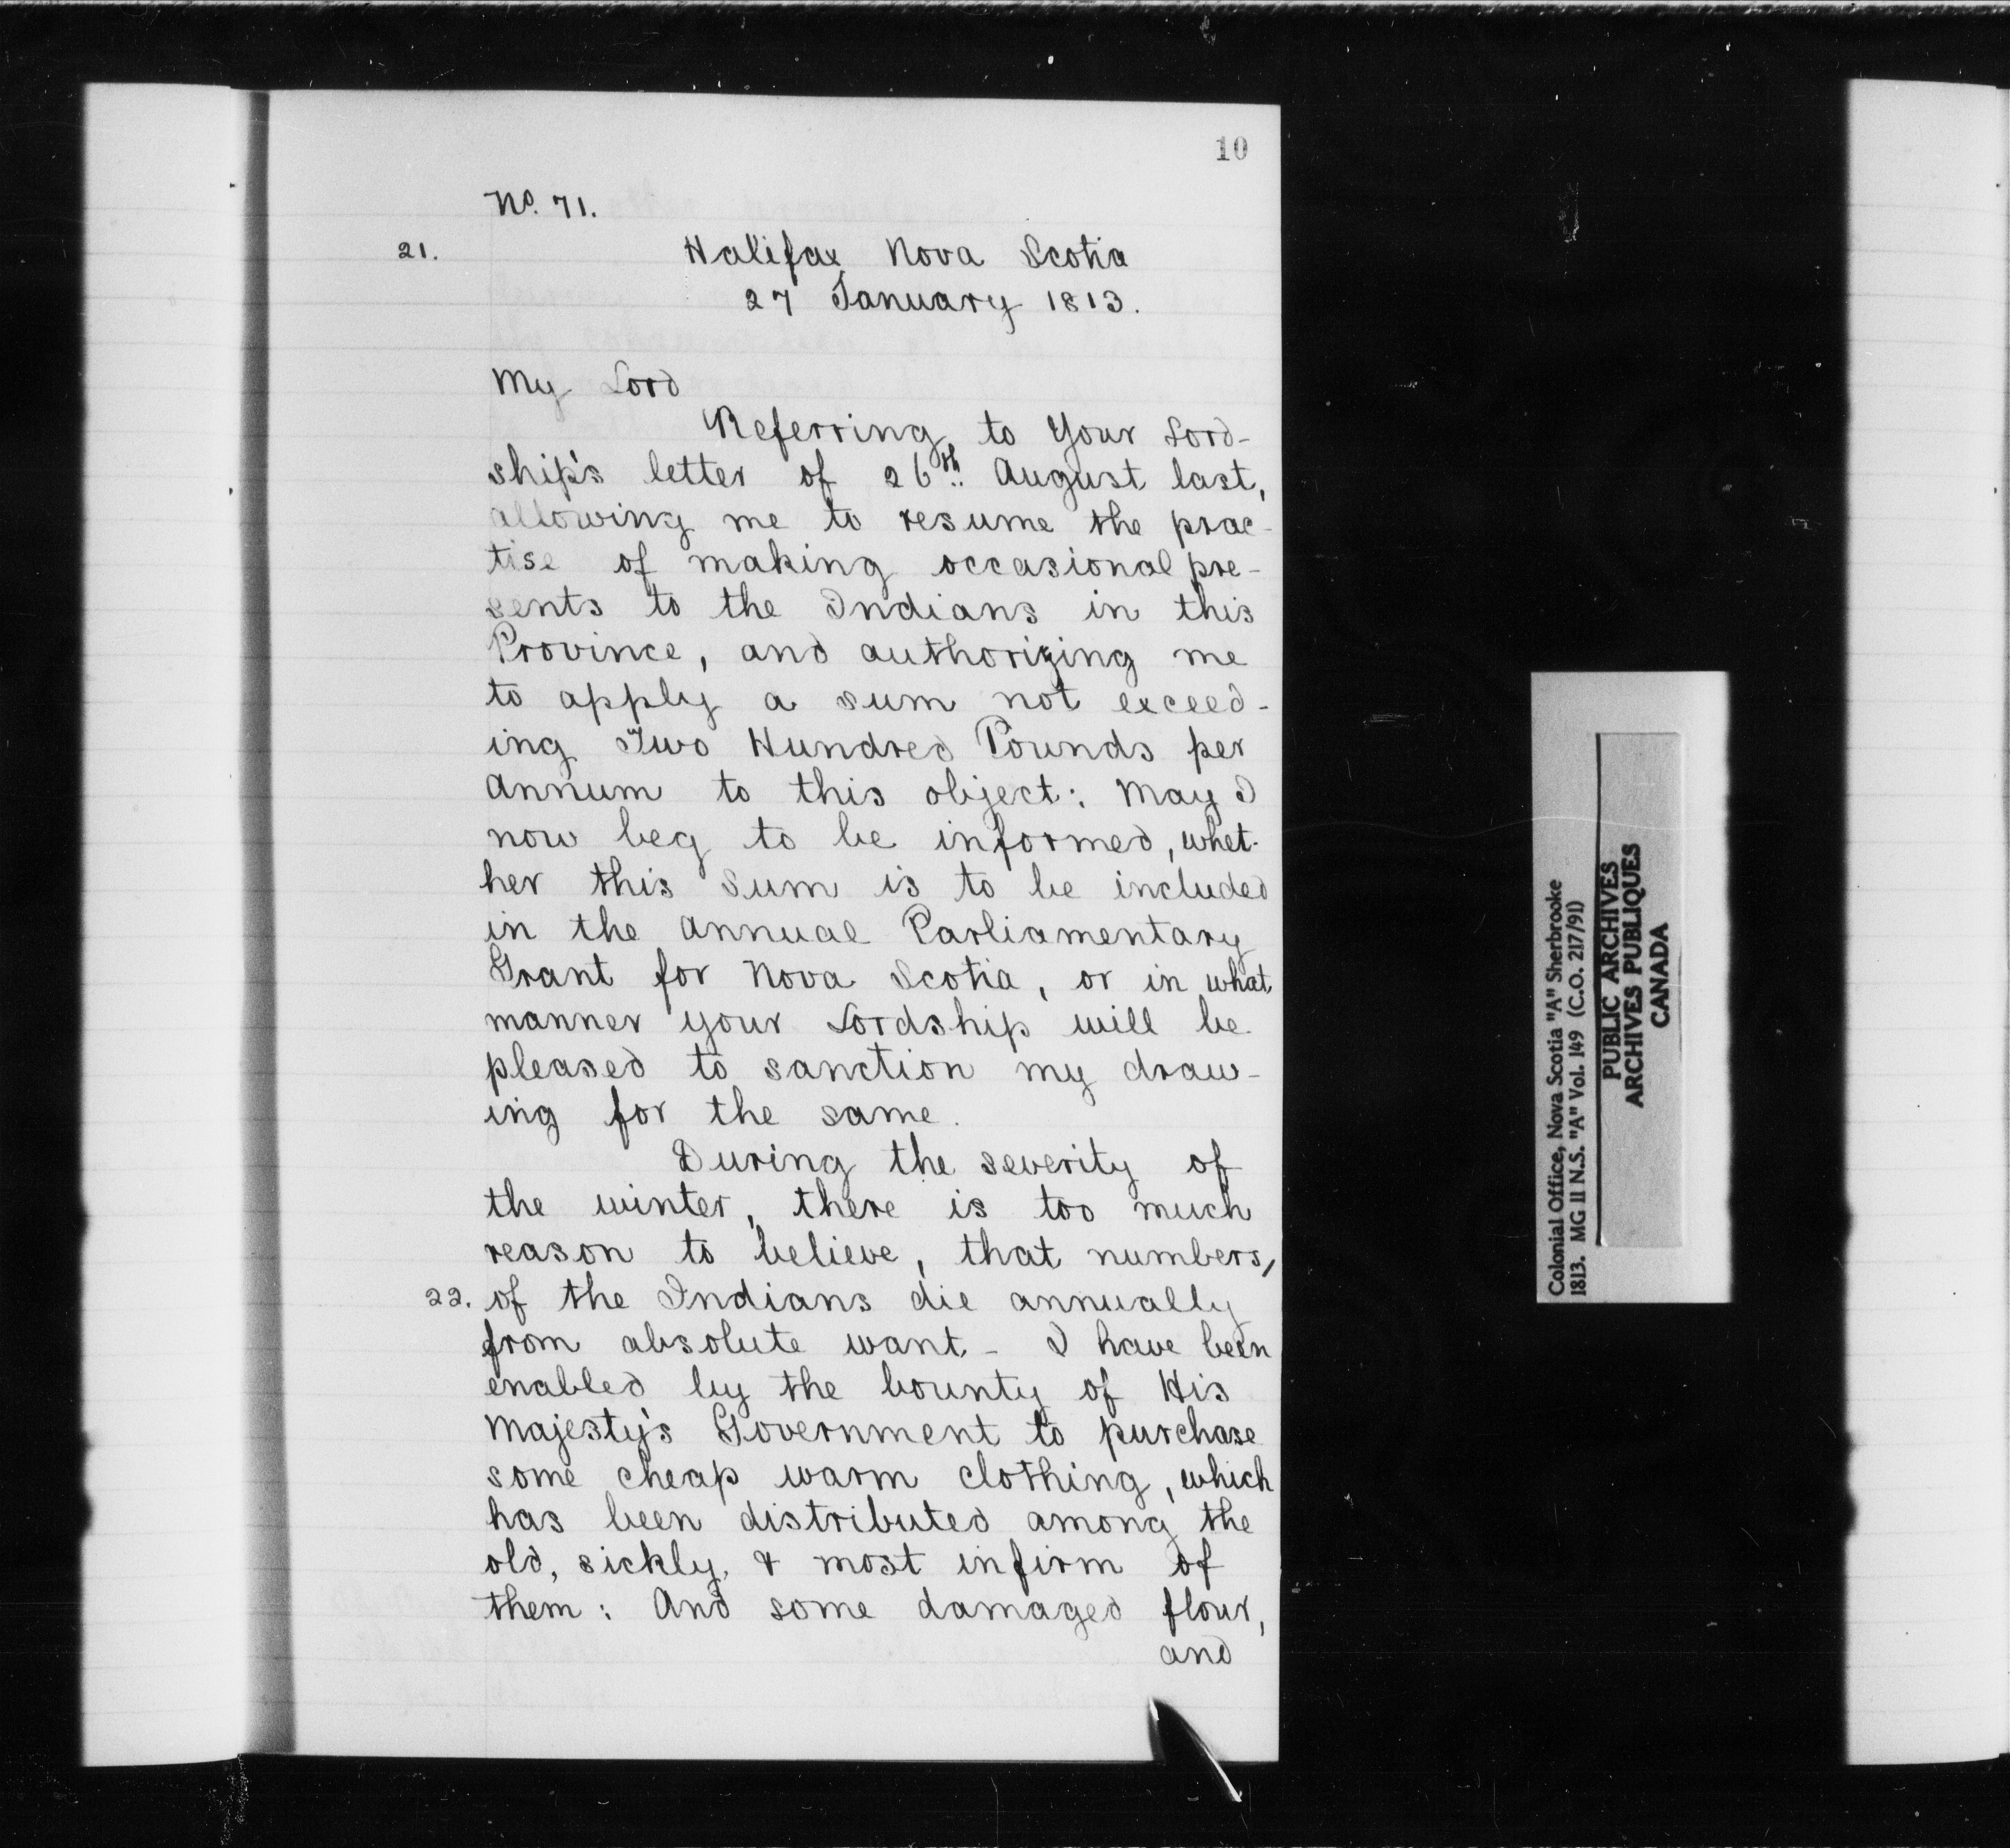 10
No. 71.
21.
Halifax Nova Scotia
27 January 1813.
My Lord
Referring to Your Lord-
ship's letter of 26th August last,
allowing me to resume the prac-
tise of making occasional pre-
sents to the Indians in this
Province, and authorizing me
to apply a sum not exceed-
ing Two Hundred Pounds per
Annum to this object: May I
now beg to be informed, whet-
her this Sum is to be included
in the Annual Parliamentary
Grant for Nova Scotia, or in what
manner your Lordship will be
pleased to sanction my draw-
ing for the same.
During the severity of
the winter, there is too much
reason to believe, that numbers,
22. of the Indians die annually
from absolute want - I have been
enabled by the bounty of His
Majesty's Government to purchase
some cheap warm clothing, which
has been distributed among the
old, sickly, & most infirm of
them: And some damaged flour,
and
Colonial Office, Nova Scotia "A" Sherbrooke
1813. MG 11 N.S. "A" Vol. 149 (C.O. 217/91)
PUBLIC ARCHIVES
ARCHIVES PUBLIQUES
CANADA